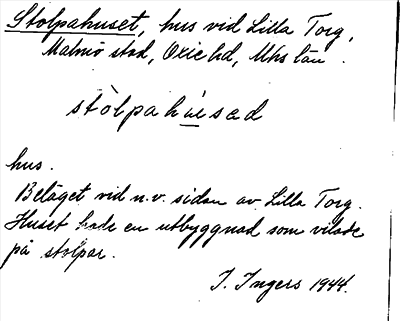 Stolpahuset, hus vid Lilla Torg,
Malmö stad, Oxie hd, Mhs län.
stòlpahùsad
hus.
Beläget vid n.v. sidan av Lilla Torg.
Huset hade en utbyggnad som vilade
på stolpar.
I. Ingers 1944.